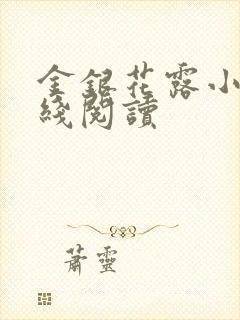 金銀花露小
綫閱讀
蕭靈